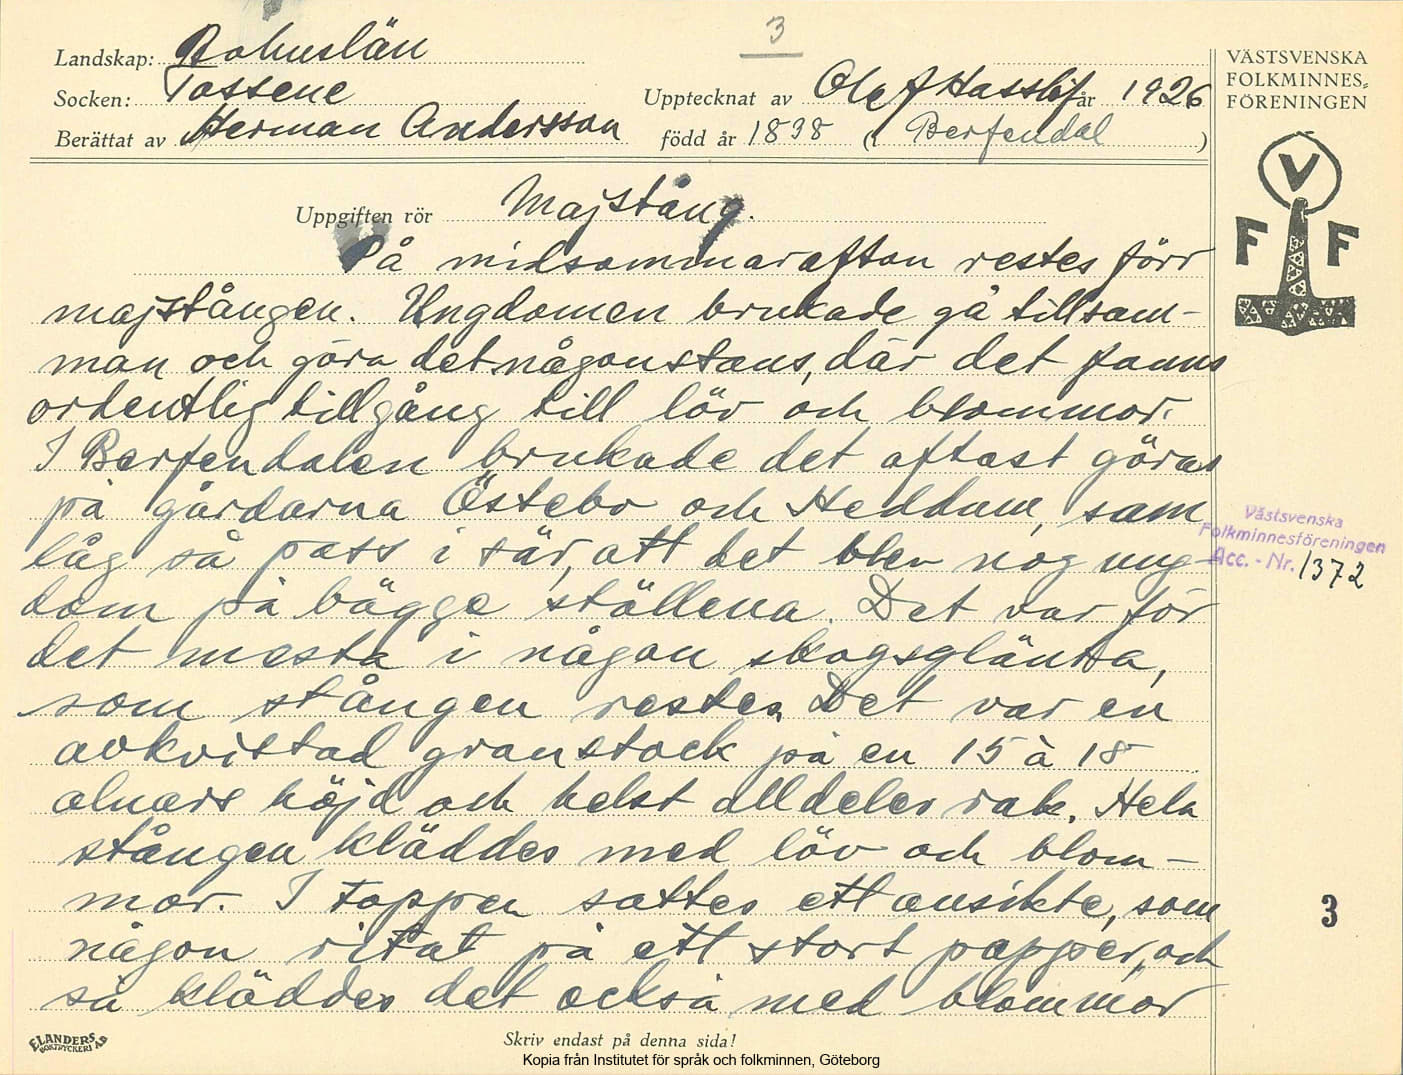 3
Landskap: Bohuslän
Socken: Tossene
Upptecknat av Olof Hasslöf år 1926
Berättat av Herman Andersson
född år 1898 (i Berfendal)
Uppgiften rör Majstång.
På midsommarafton restes förr
majstången. Ungdomen brukade gå tillsam-
man och göra det någonstans, där det fanns
ordentlig tillgång till löv och blommor.
I Berfendalen brukade det oftast göras
på gårdarna Östebo och Heddum, som
låg så pass i sär, att det blev nog ung-
dom på bägge ställena. Det var för
det mesta i någon skogsglänta,
som stången restes. Det var en
avkvistad granstock på en 15 à 18
alnars höjd och helst alldeles rak. Hela
stången kläddes med löv och blom-
mor. I toppen sattes ett ansikte, som
någon ritat på ett stort papper, och
så kläddes det också med blommor
VÄSTSVENSKA
FOLKMINNES-
FÖRENINGEN
V
F F
Västsvenska
Folkminnesföreningen
Acc. - Nr. 1372
3
ELANDERS
BOKTRYCKERI AB
Skriv endast på denna sida!
Kopia från Institutet för språk och folkminnen, Göteborg